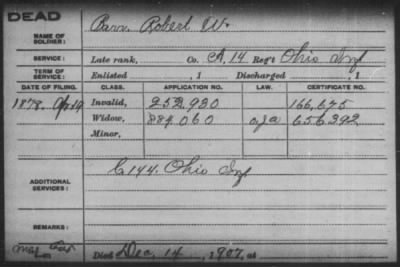 DEAD
NAME OF SOLDIER: Barr, Robert W.
SERVICE: Late rank, Co. A, 14 Reg't Ohio Inf
TERM OF SERVICE: Enlisted , 1 Discharged , 1
DATE OF FILING. CLASS. APPLICATION NO. LAW. CERTIFICATE NO.
1878. Apr 19 Invalid, 252,930 166,675
Widow, 884,060 O 656,392
Minor,
ADDITIONAL SERVICES: C 144. Ohio Inf
REMARKS:
Died Dec. 14, 1907, at